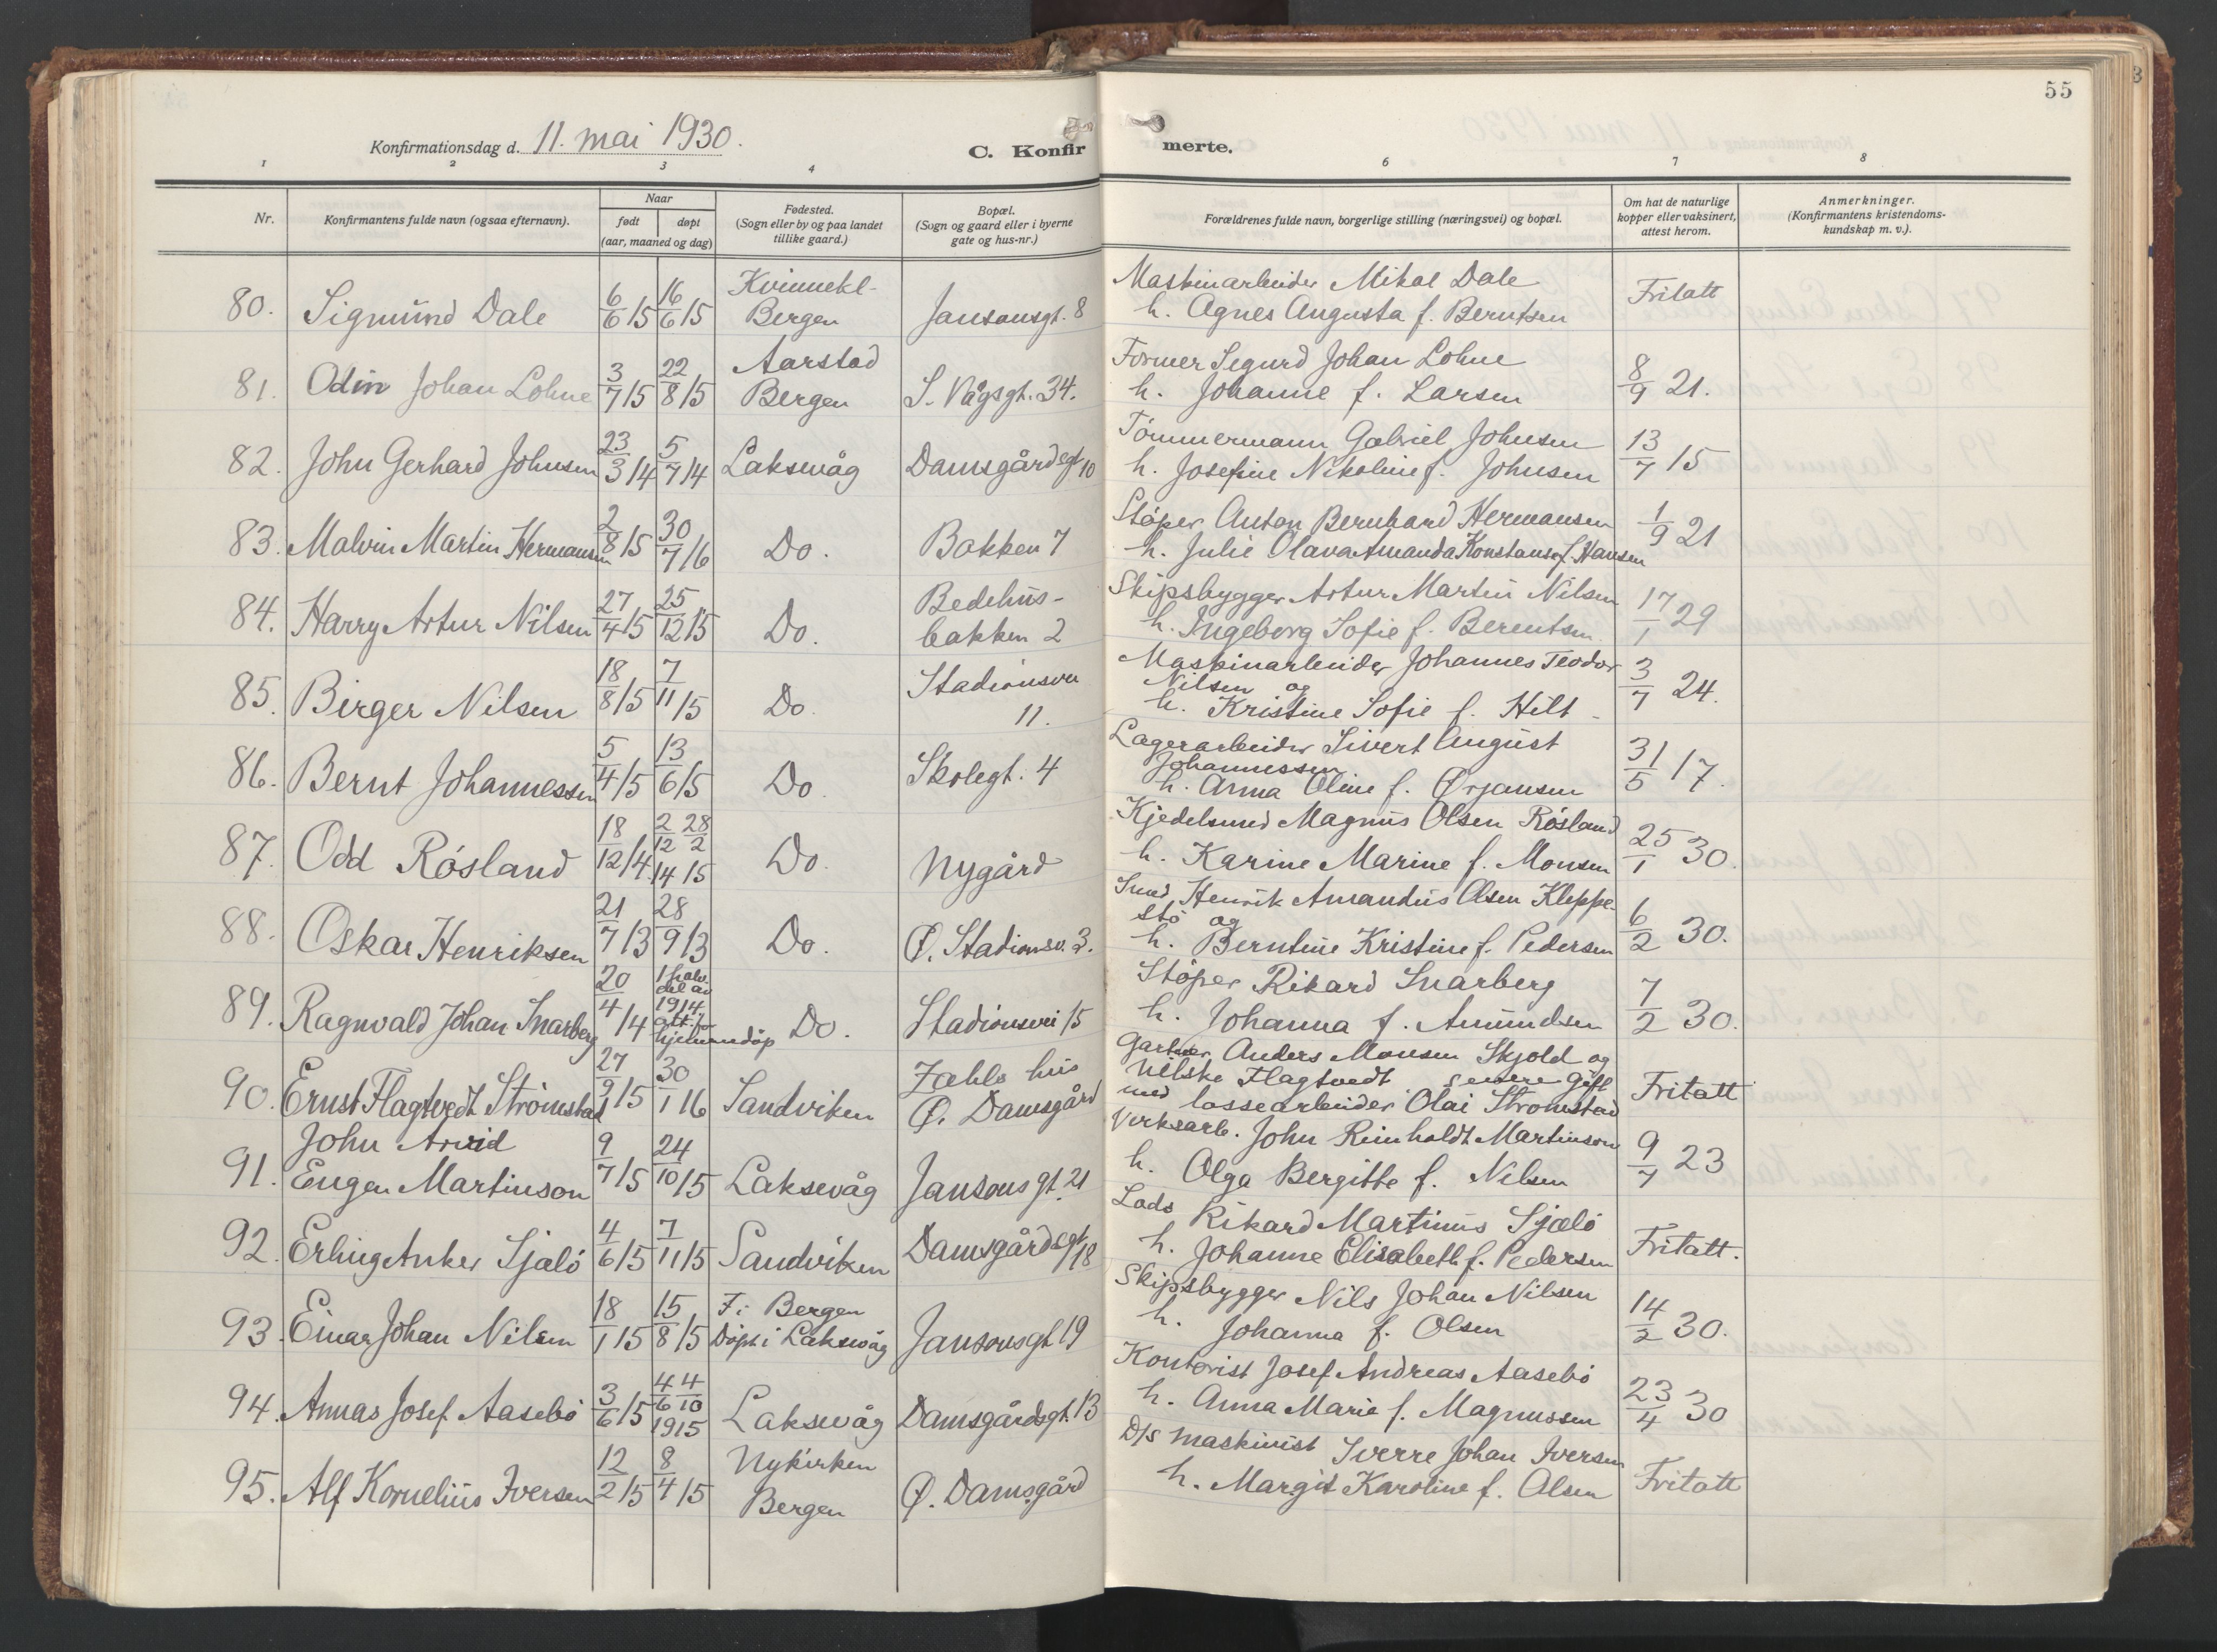 55
Konfirmationsdag d. 11. mai 1930.
C. Konfirmerte.
1 2 3 4 6 7 8
Nr.
Konfirmantens fulde navn (ogsaa efternavn).
Naar
født døpt
(aar, maaned og dag)
Fødested.
(Sogn eller by og paa landet
tillike gaard.)
Bopæl.
(Sogn og gaard eller i byerne
gate og hus-nr.)
Forældrenes fulde navn, borgerlige stilling (næringsvei) og bopæl.
Om hat de naturlige
kopper eller vaksinert,
attest herom.
Anmerkninger.
(Konfirmantens kristendoms-
kundskap m. v.).
80. Sigmund Dale 6/6 15 16/6 15 Kvinnekl- Bergen Jansonsgt. 8
Maskinarbeider Mikal Dale
h. Agnes Augusta f. Berntsen
Fritatt
81. Odin Johan Lohne 3/7 15 22/8 15 Aarstad Bergen S. Vågsgt. 34.
Former Sigurd Johan Lohne
h. Johanne f. Larsen
8/9 21.
82. John Gerhard Johnsen 23/3 14 5/7 14 Laksevåg Damsgårdsgt 10
Tömmermann Gabriel Johnsen
h. Josefine Nikoline f. Johnsen
13/7 15
83. Malvin Martin Hermansen 2/8 15 30/7 16 Do. Bakken 7
Støper Anton Bernhard Hermansen
h. Julie Olava Amanda Konstanse f. Hansen
1/9 21
84. Harry Artur Nilsen 27/4 15 25/12 15 Do. Bedehus-
bakken 2
Skipsbygger Artur Martin Nilsen
h. Ingeborg Sofie f. Berentsen
17/1 29
85. Birger Nilsen 18/8 15 7/11 15 Do. Stadionsvei
11.
Maskinarbeider Johannes Teodor
Nilsen og
h. Kristine Sofie f. Hilt
3/7 24.
86. Bernt Johannessen 5/4 15 13/6 15 Do. Skolegt. 4
Lagerarbeider Sivert August
Johannessen
h. Anna Oline f. Ørjansen
31/5 17.
87. Odd Røsland 18/12 14. 2/12 14 28/2 15 Do. Nygård
Kjedelsmed Magnus Olsen Røsland
h. Karine Marine f. Monsen
25/1 30.
88. Oskar Henriksen 21/7 13 28/9 13 Do. Ø. Stadionsv. 3.
Smed Henrik Amandus Olsen Kleppe-
stø og
h. Berntine Kristine f. Pedersen
6/2 30.
89. Ragnvald Johan Snarberg 20/4 14 1 halv-
del av
1914.
att. for
hjemmedøp Do. Stadionsvei 15
Støper Rikard Snarberg
h. Johanna f. Amundsen
7/2 30.
90. Ernst Flagtvedt Strömstad 27/9 15 30/1 16 Sandviken Zahls hus
Ø. Damsgård
Gartner Anders Monsen Skjold og
Flagtvedt senere gift
med lossearbeider Olai Strömstad
Fritatt
91. John Arvid
Eugen Martinson 9/7 15 24/10 15 Laksevåg Jansonsgt. 21
Verksarb. John Reinholdt Martinson
h. Olga Bergitte f. Nilsen
9/7 23
92. Erling Anker Sjælö 4/6 15 7/11 15 Sandviken Damsgårdsgt 18
Lods Rikard Martinus Sjælö
h. Johanne Elisabeth f. Pedersen
Fritatt.
93. Einar Johan Nilsen 18/1 15 15/8 15 F. i Bergen
Døpt i Laksevåg Jansonsgt 19
Skipsbygger Nils Johan Nilsen
h. Johanna f. Olsen
14/2 30.
94. Annas Josef Aasebö 3/6 15 4/6 4/10 1915 Laksevåg Damsgårdsgt. 13
Kontorist Josef Andreas Aasebö
h. Anna Marie f. Magnussen
23/4 30
95. Alf Kornelius Iversen 12/2 15 8/4 15 Nykirken
Bergen Ø. Damsgård
D/s maskinist Sverre Johan Iversen
h. Margit Karoline f. Olsen
Fritatt